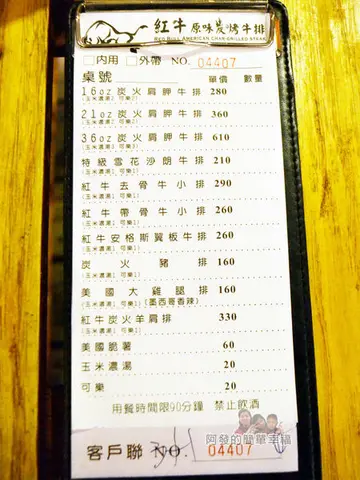 紅牛原味炭烤牛排
RED BULL AMERICAN CHAR-GRILLED STEAK
□內用 □外帶 NO. 04407
桌號 單價 數量
16oz炭火肩胛牛排 280
(玉米濃湯1 可樂1)
21oz炭火肩胛牛排 360
36oz炭火肩胛牛排 610
特級雪花沙朗牛排 210
(玉米濃湯1 可樂1)
紅牛去骨牛小排 290
(玉米濃湯1 可樂1)
紅牛帶骨牛小排 260
(玉米濃湯1 可樂1)
紅牛安格斯翼板牛排 260
(玉米濃湯1 可樂1)
炭火豬排 160
(玉米濃湯1 可樂1)
美國大雞腿排 160
(玉米濃湯1 可樂1)(墨西哥香辣)
紅牛炭火羊肩排 330
(玉米濃湯1 可樂1)
美國脆薯 60
玉米濃湯 20
可樂 20
用餐時間限90分鐘 禁止飲酒
客戶聯 NO. 04407
阿發的簡單幸福